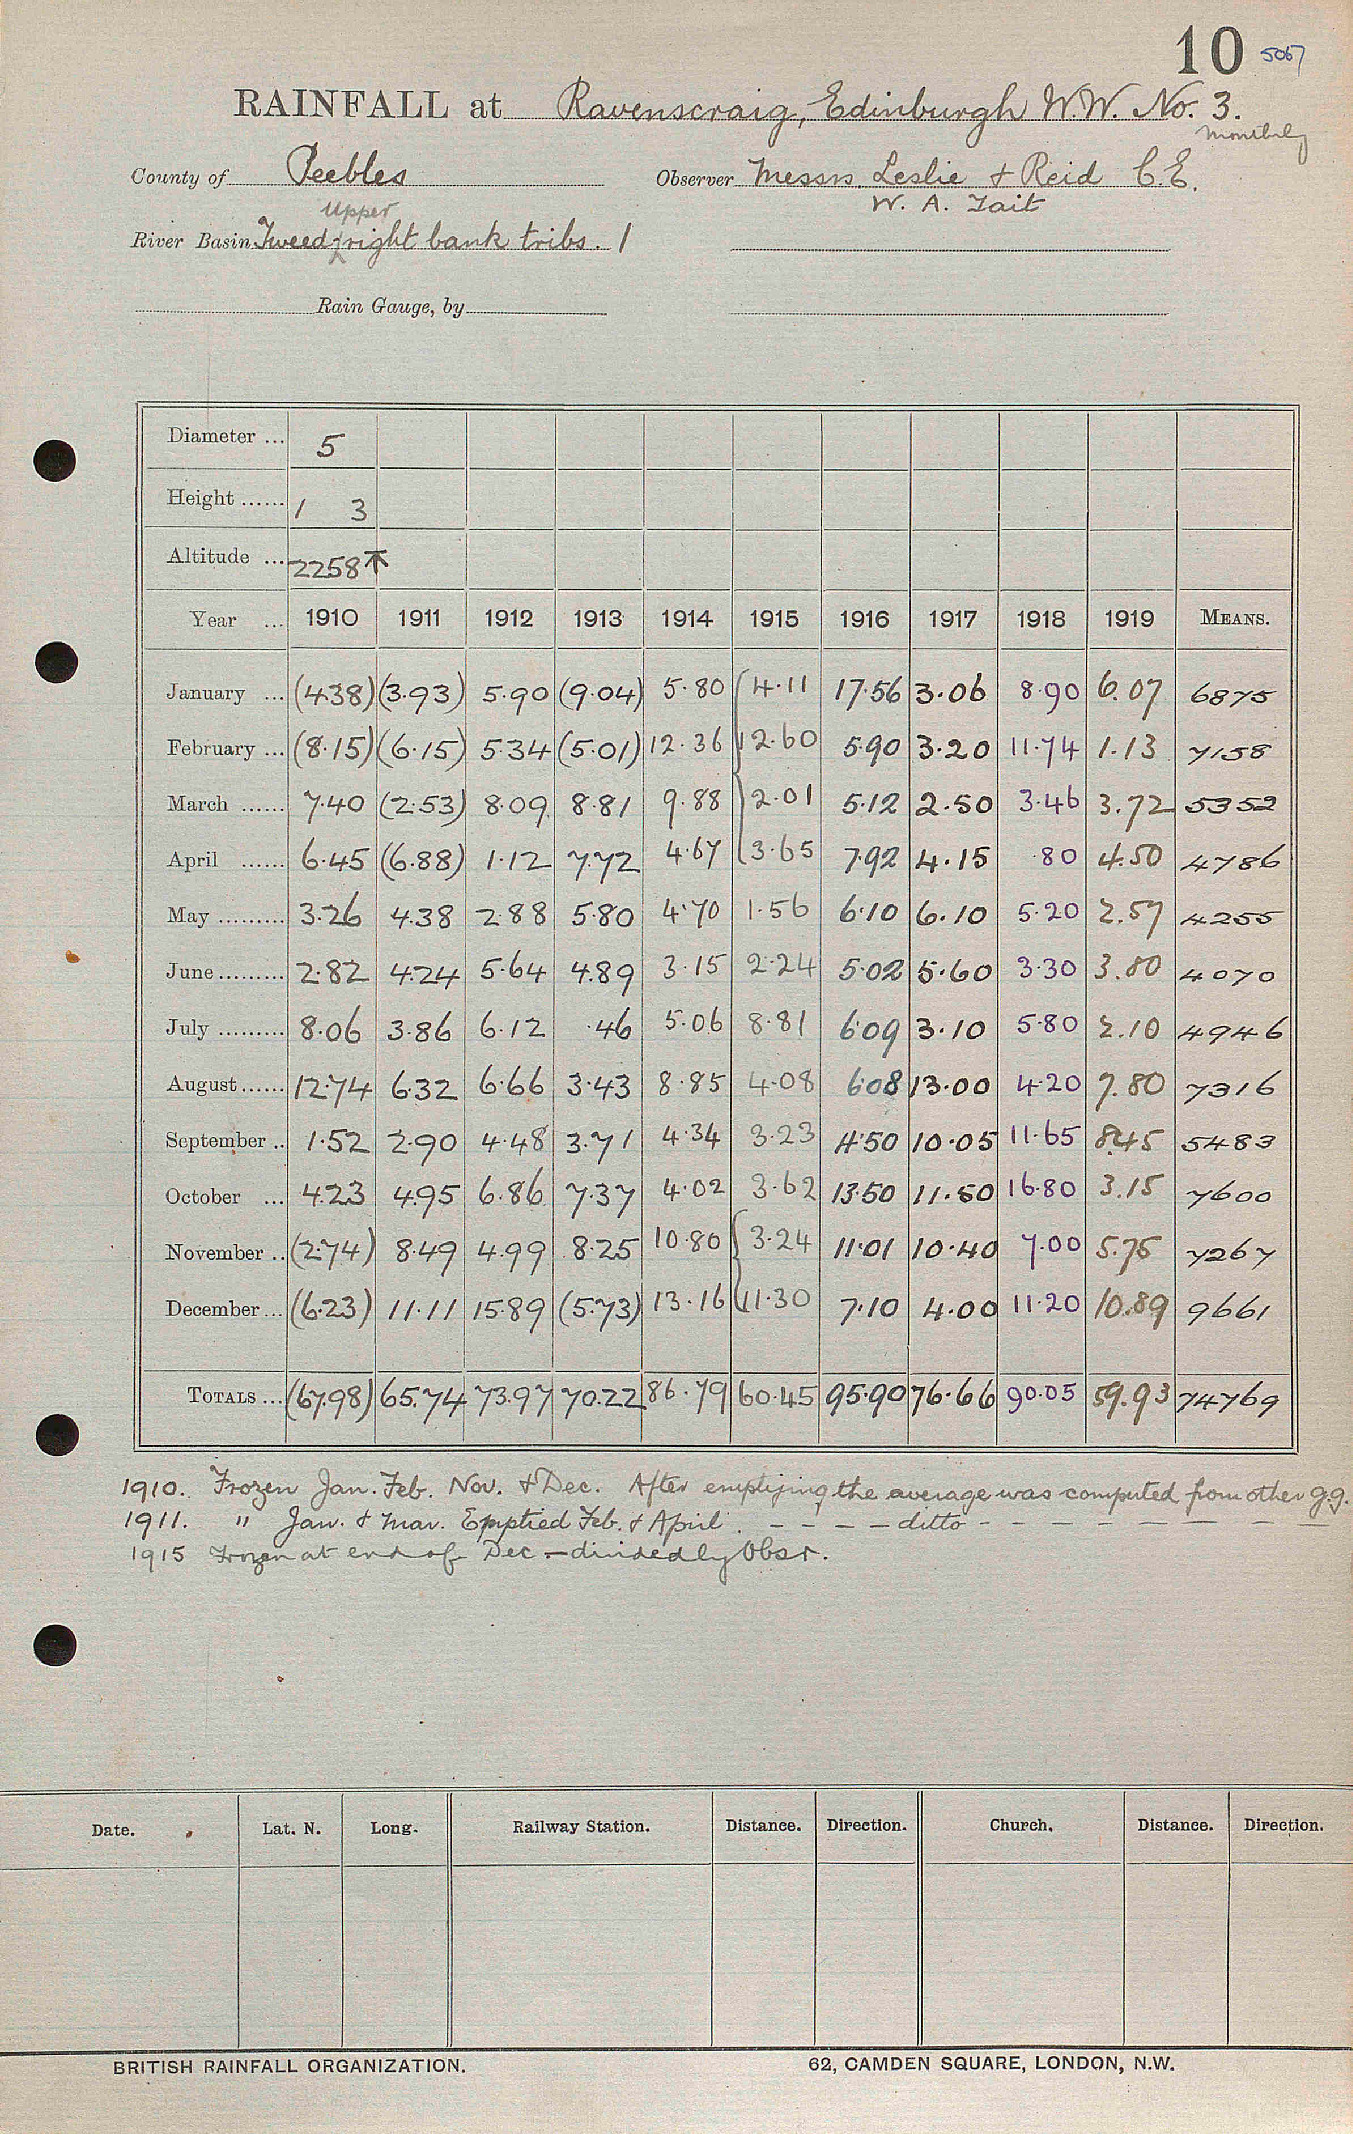 10 5067
RAINFALL at Ravenscraig, Edinburgh W.W. No. 3.
monthly
County of Peebles Observer Messrs. Leslie & Reid C.E.
W. A. Tait
Upper
River Basin Tweed ^ right bank tribs. 1
Rain Gauge, by
Diameter ... 5
Height ...... 1 3
Altitude ... 2258
Year ... 1910 1911 1912 1913 1914 1915 1916 1917 1918 1919 MEANS.
January ... (4.38) (3.93) 5.90 (9.04) 5.80 4.11 17.56 3.06 8.90 6.07 6875
February ... (8.15) (6.15) 5.34 (5.01) 12.36 12.60 5.90 3.20 11.74 1.13 7158
March ...... 7.40 (2.53) 8.09 8.81 9.88 2.01 5.12 2.50 3.46 3.72 5352
April ...... 6.45 (6.88) 1.12 7.72 4.67 3.65 7.92 4.15 .80 4.50 4786
May ......... 3.26 4.38 2.88 5.80 4.70 1.56 6.10 6.10 5.20 2.57 4255
June ......... 2.82 4.24 5.64 4.89 3.15 2.24 5.02 5.60 3.30 3.80 4070
July ......... 8.06 3.86 6.12 .46 5.06 8.81 6.09 3.10 5.80 2.10 4946
August ...... 12.74 6.32 6.66 3.43 8.85 4.08 6.08 13.00 4.20 7.80 7316
September .. 1.52 2.90 4.48 3.71 4.34 3.23 4.50 10.05 11.65 8.45 5483
October ... 4.23 4.95 6.86 7.37 4.02 3.62 13.50 11.50 16.80 3.15 7600
November .. (2.74) 8.49 4.99 8.25 10.80 3.24 11.01 10.40 7.00 5.75 7267
December ... (6.23) 11.11 15.89 (5.73) 13.16 11.30 7.10 4.00 11.20 10.89 9661
TOTALS ... (67.98) 65.74 73.97 70.22 86.79 60.45 95.90 76.66 90.05 59.93 74769
1910. Frozen Jan. Feb. Nov. & Dec. After emptying the average was computed from other g.g.
1911. " Jan. & Mar. Emptied Feb. & April. - - - - ditto - - - - - - - -
1915 Frozen at end of Dec - divided by Obsr.
Date. Lat. N. Long. Railway Station. Distance. Direction. Church. Distance. Direction.
BRITISH RAINFALL ORGANIZATION. 62, CAMDEN SQUARE, LONDON, N.W.